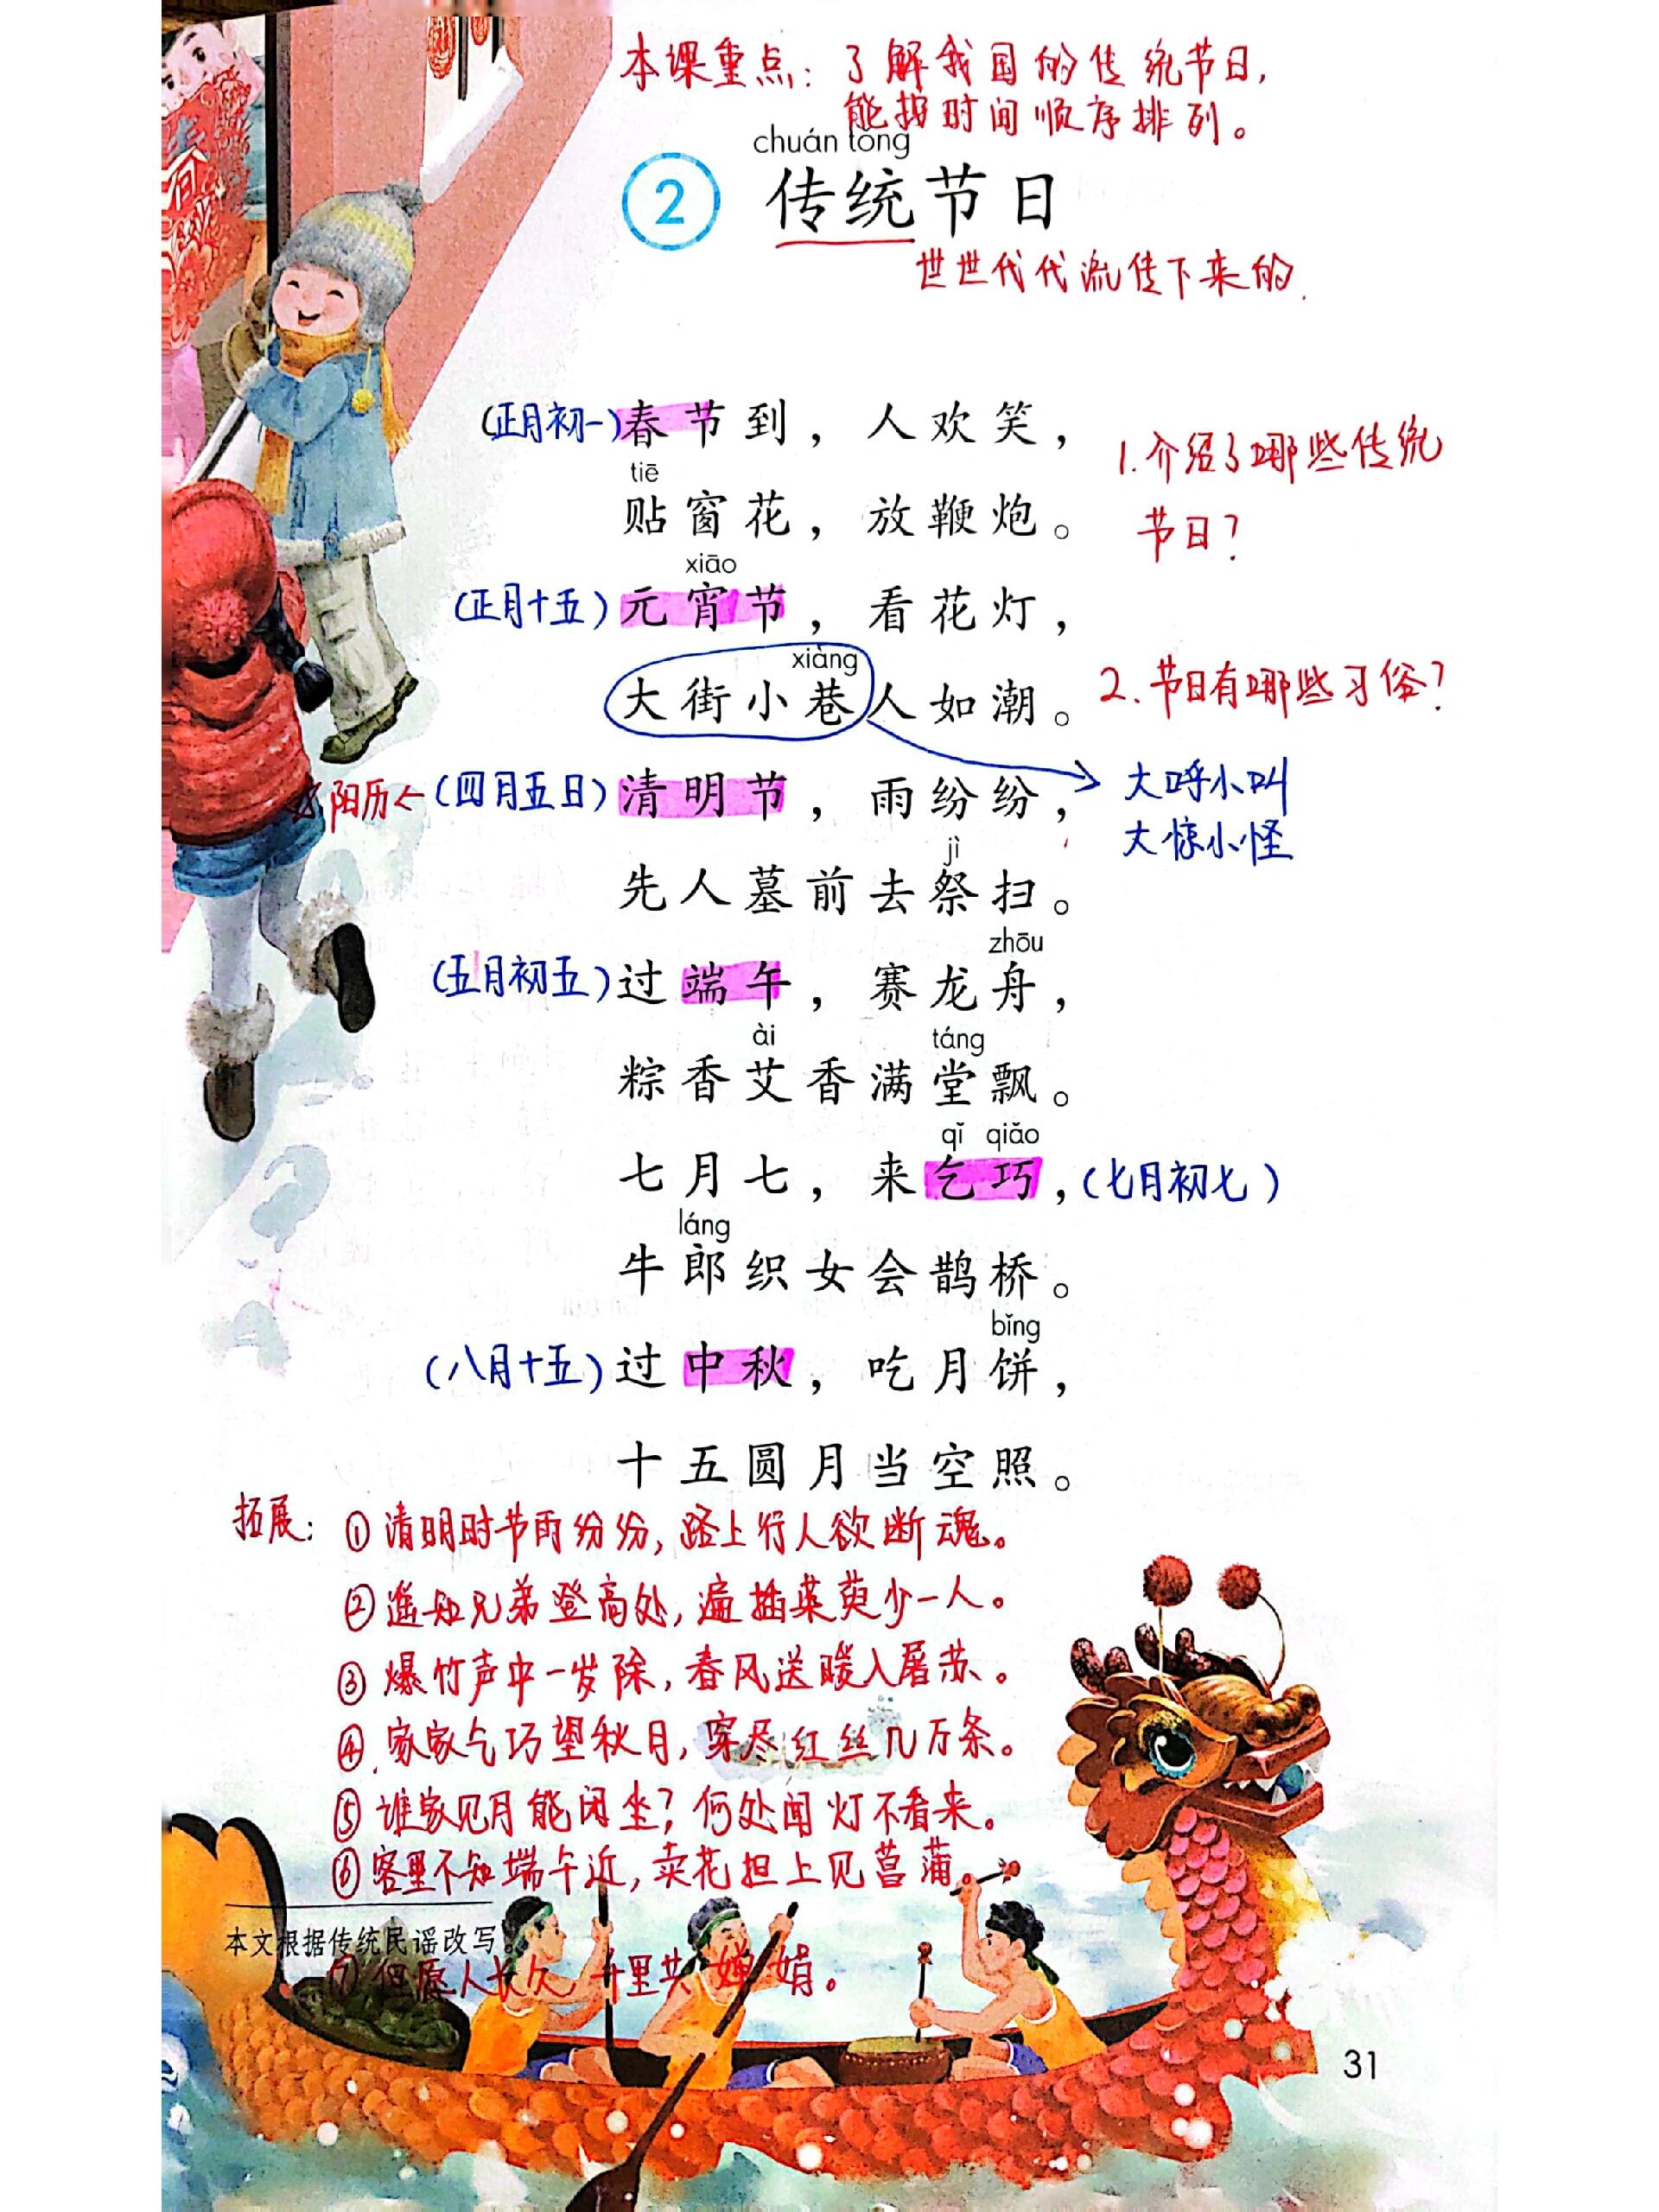 本课重点：了解我国的传统节日，
能按时间顺序排列。
chuán tǒng
2 传统节日
世世代代流传下来的.
(正月初一)春节到，人欢笑，
1.介绍了哪些传统
节日？
tiē
贴窗花，放鞭炮。
xiāo
(正月十五)元宵节，看花灯，
xiàng
大街小巷人如潮。
2.节日有哪些习俗？
大呼小叫
大惊小怪
阳历←(四月五日)清明节，雨纷纷，
jì
先人墓前去祭扫。
zhōu
(五月初五)过端午，赛龙舟，
ài táng
粽香艾香满堂飘。
qǐ qiǎo
七月七，来乞巧，(七月初七)
láng
牛郎织女会鹊桥。
bǐng
(八月十五)过中秋，吃月饼，
十五圆月当空照。
拓展：①清明时节雨纷纷，路上行人欲断魂。
②遥知兄弟登高处，遍插茱萸少一人。
③爆竹声中一岁除，春风送暖入屠苏。
④.家家乞巧望秋月，穿尽红丝几万条。
⑤谁家见月能闲坐？何处闻灯不看来。
⑥客里不知端午近，卖花担上见菖蒲。
本文根据传统民谣改写。
⑦但愿人长久 千里共婵娟。
31